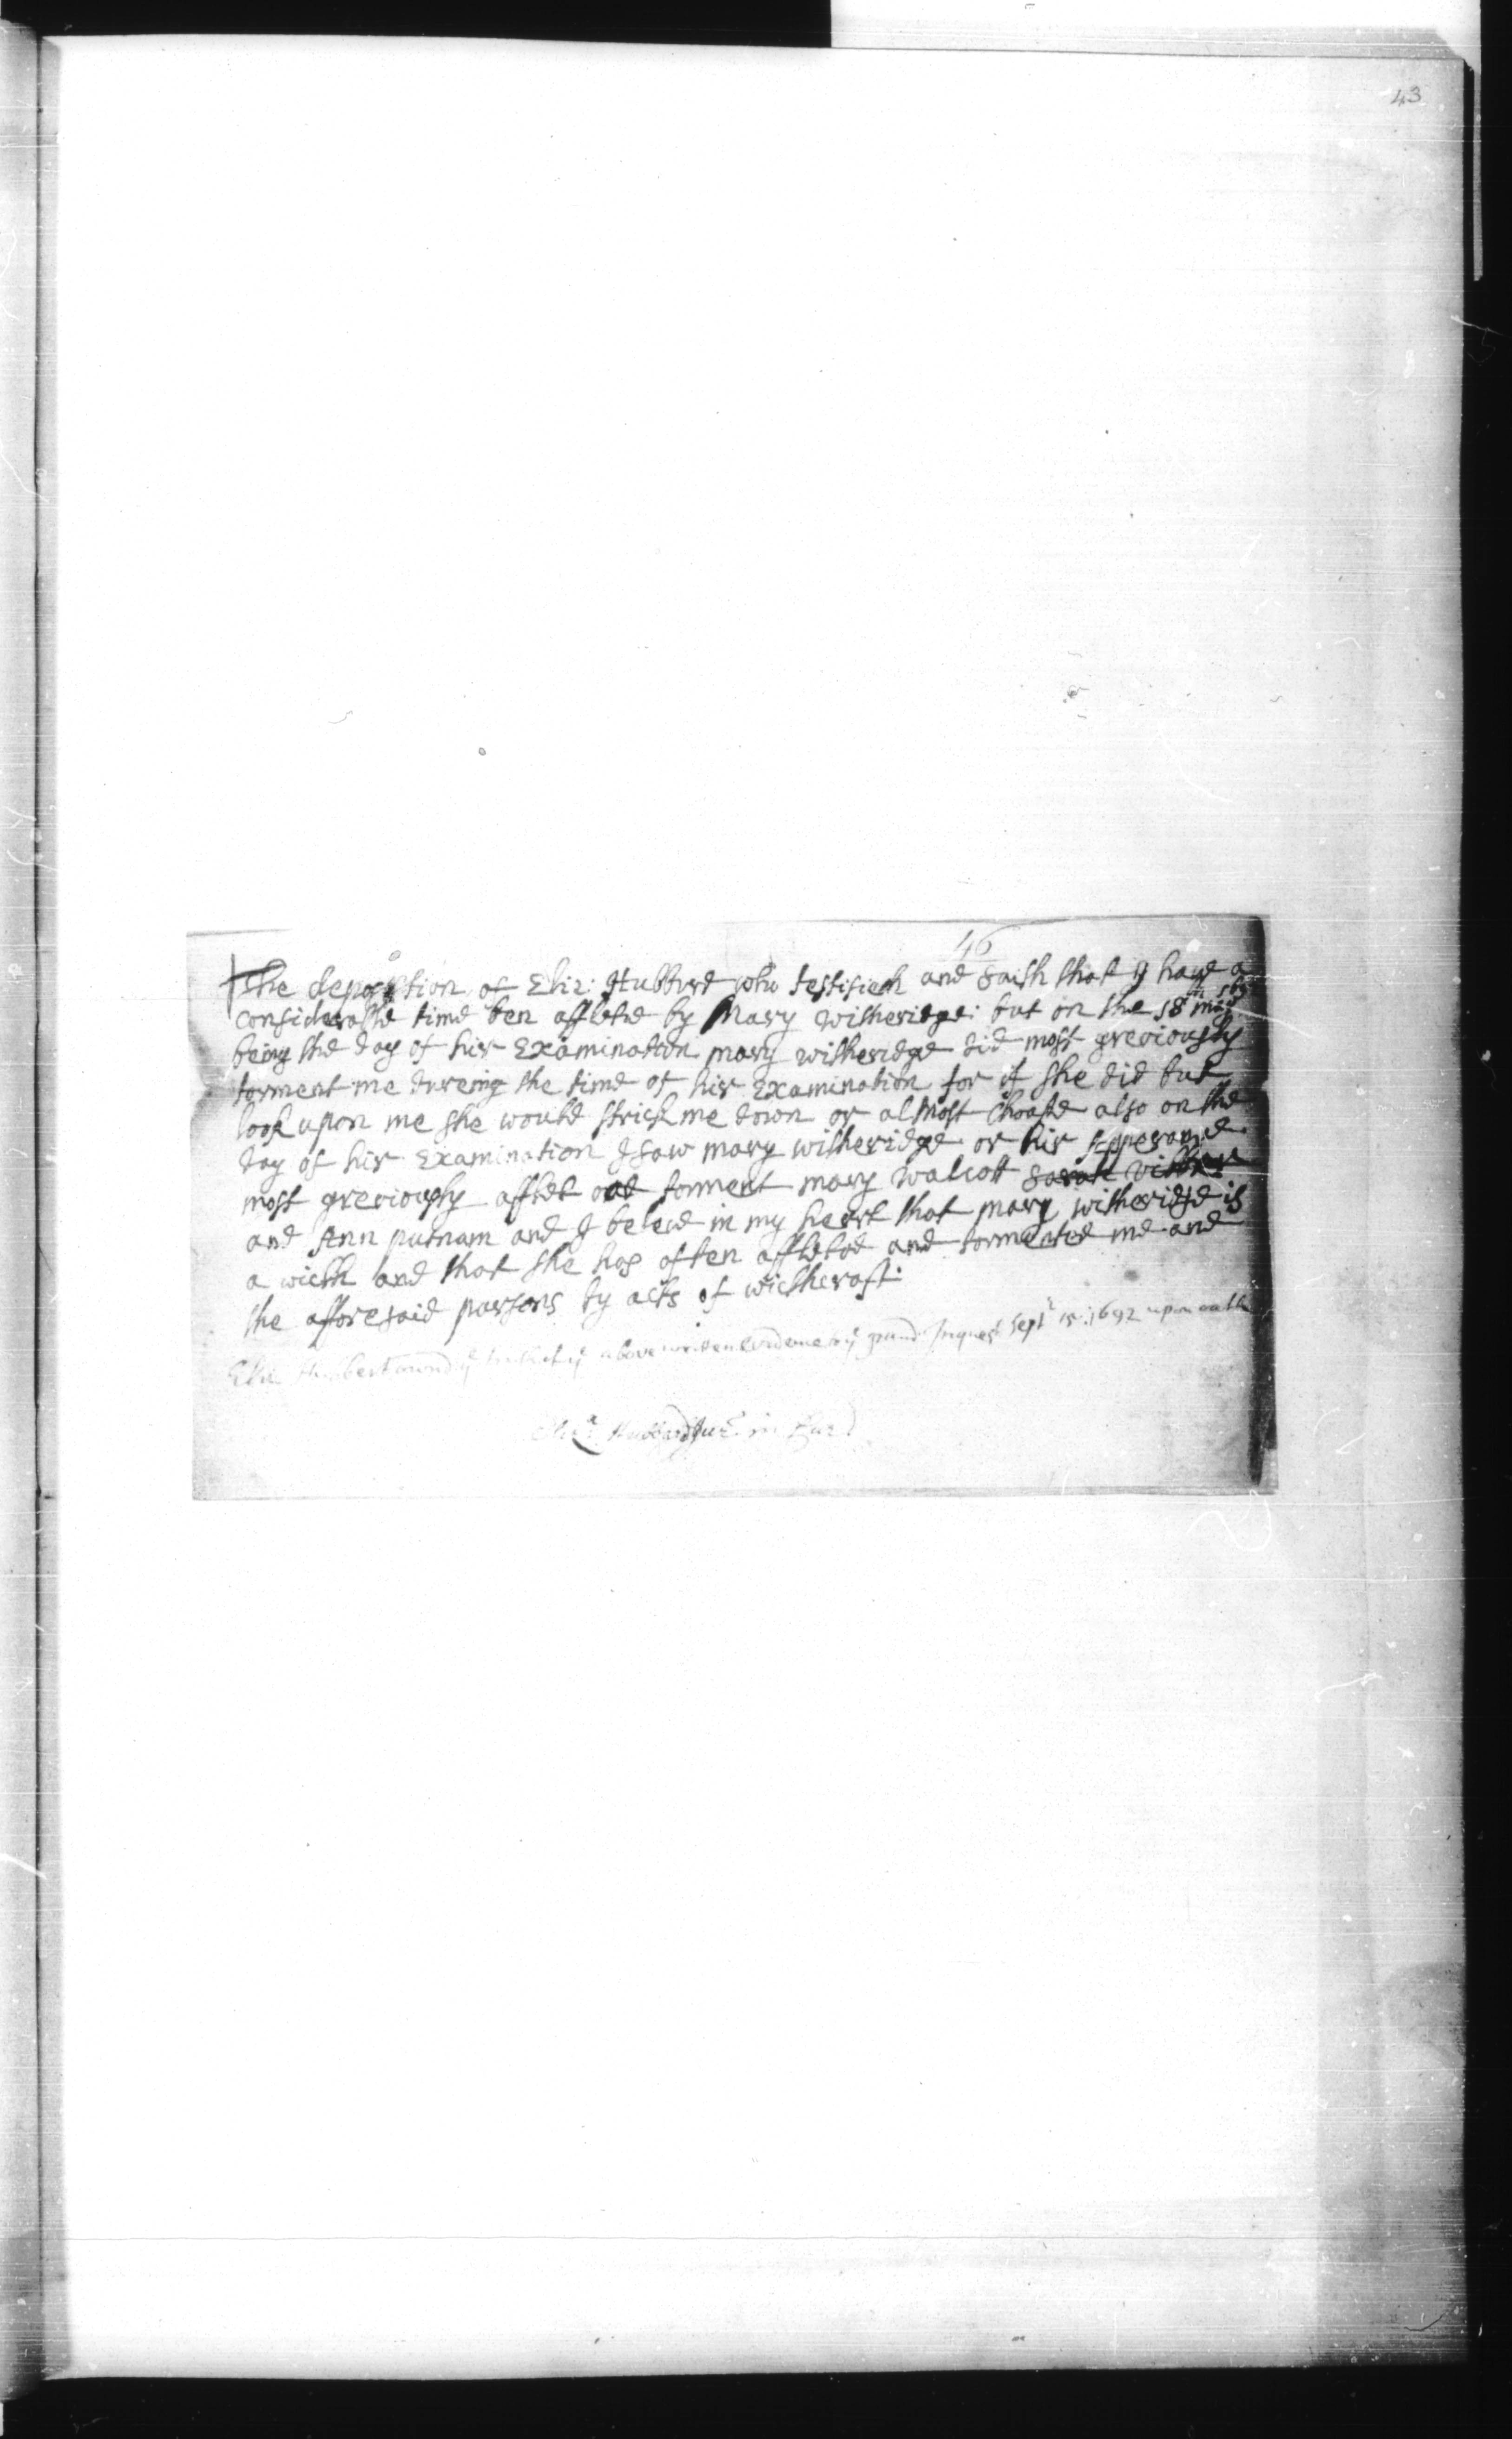 43
46
The deposistion of Eliz: Hubburd who testifieth and saith that I haue a
considerable time ben afflected by Mary witheridge: but on the 18th may 1692
being the day of hir Examination mary witheridge did most greviously
torment me dureing the time of hir Examination for if she did but
look upon me she would strick me down or almost choake also on the
day of hir Examination I saw mary witheridge or hir Apperance
most greviously afflet and torment mary walcott Sarah vibber
and Ann putnam and I beleve in my heart that mary witheridge is
a wicth and that she has often afflected and tormented me and
the afforesaid parsons by acts of wicthcraft:
Eliz Hubbert ownd ye truth of ye above writen evidence to ye grand Inquest Septr 15: 1692 upon oath
Eliza Hubbard Jurt in Cur